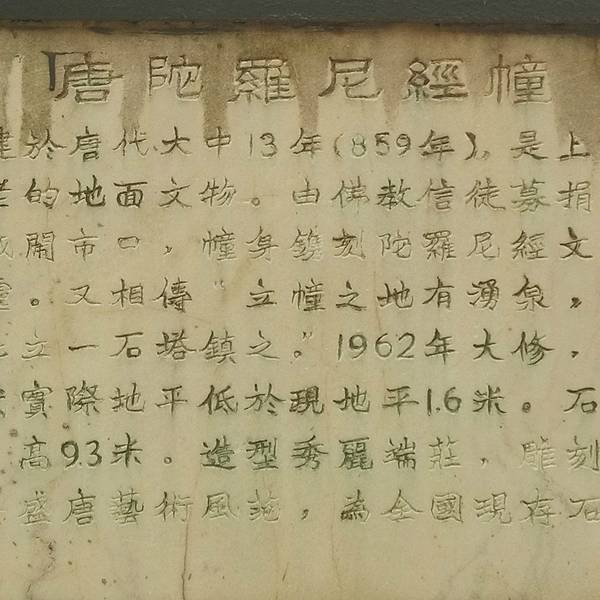 唐陀羅尼經幢
建於唐代大中13年(859年),是上
的地面文物。由佛教信徒募捐
鬧市口,幢身鐫刻陀羅尼經文
。又相傳"立幢之地有湧泉,
立一石塔鎮之。"1962年大修,
實際地平低於現地平1.6米。石
高9.3米。造型秀麗端莊,雕刻
盛唐藝術風範,為全國現存石